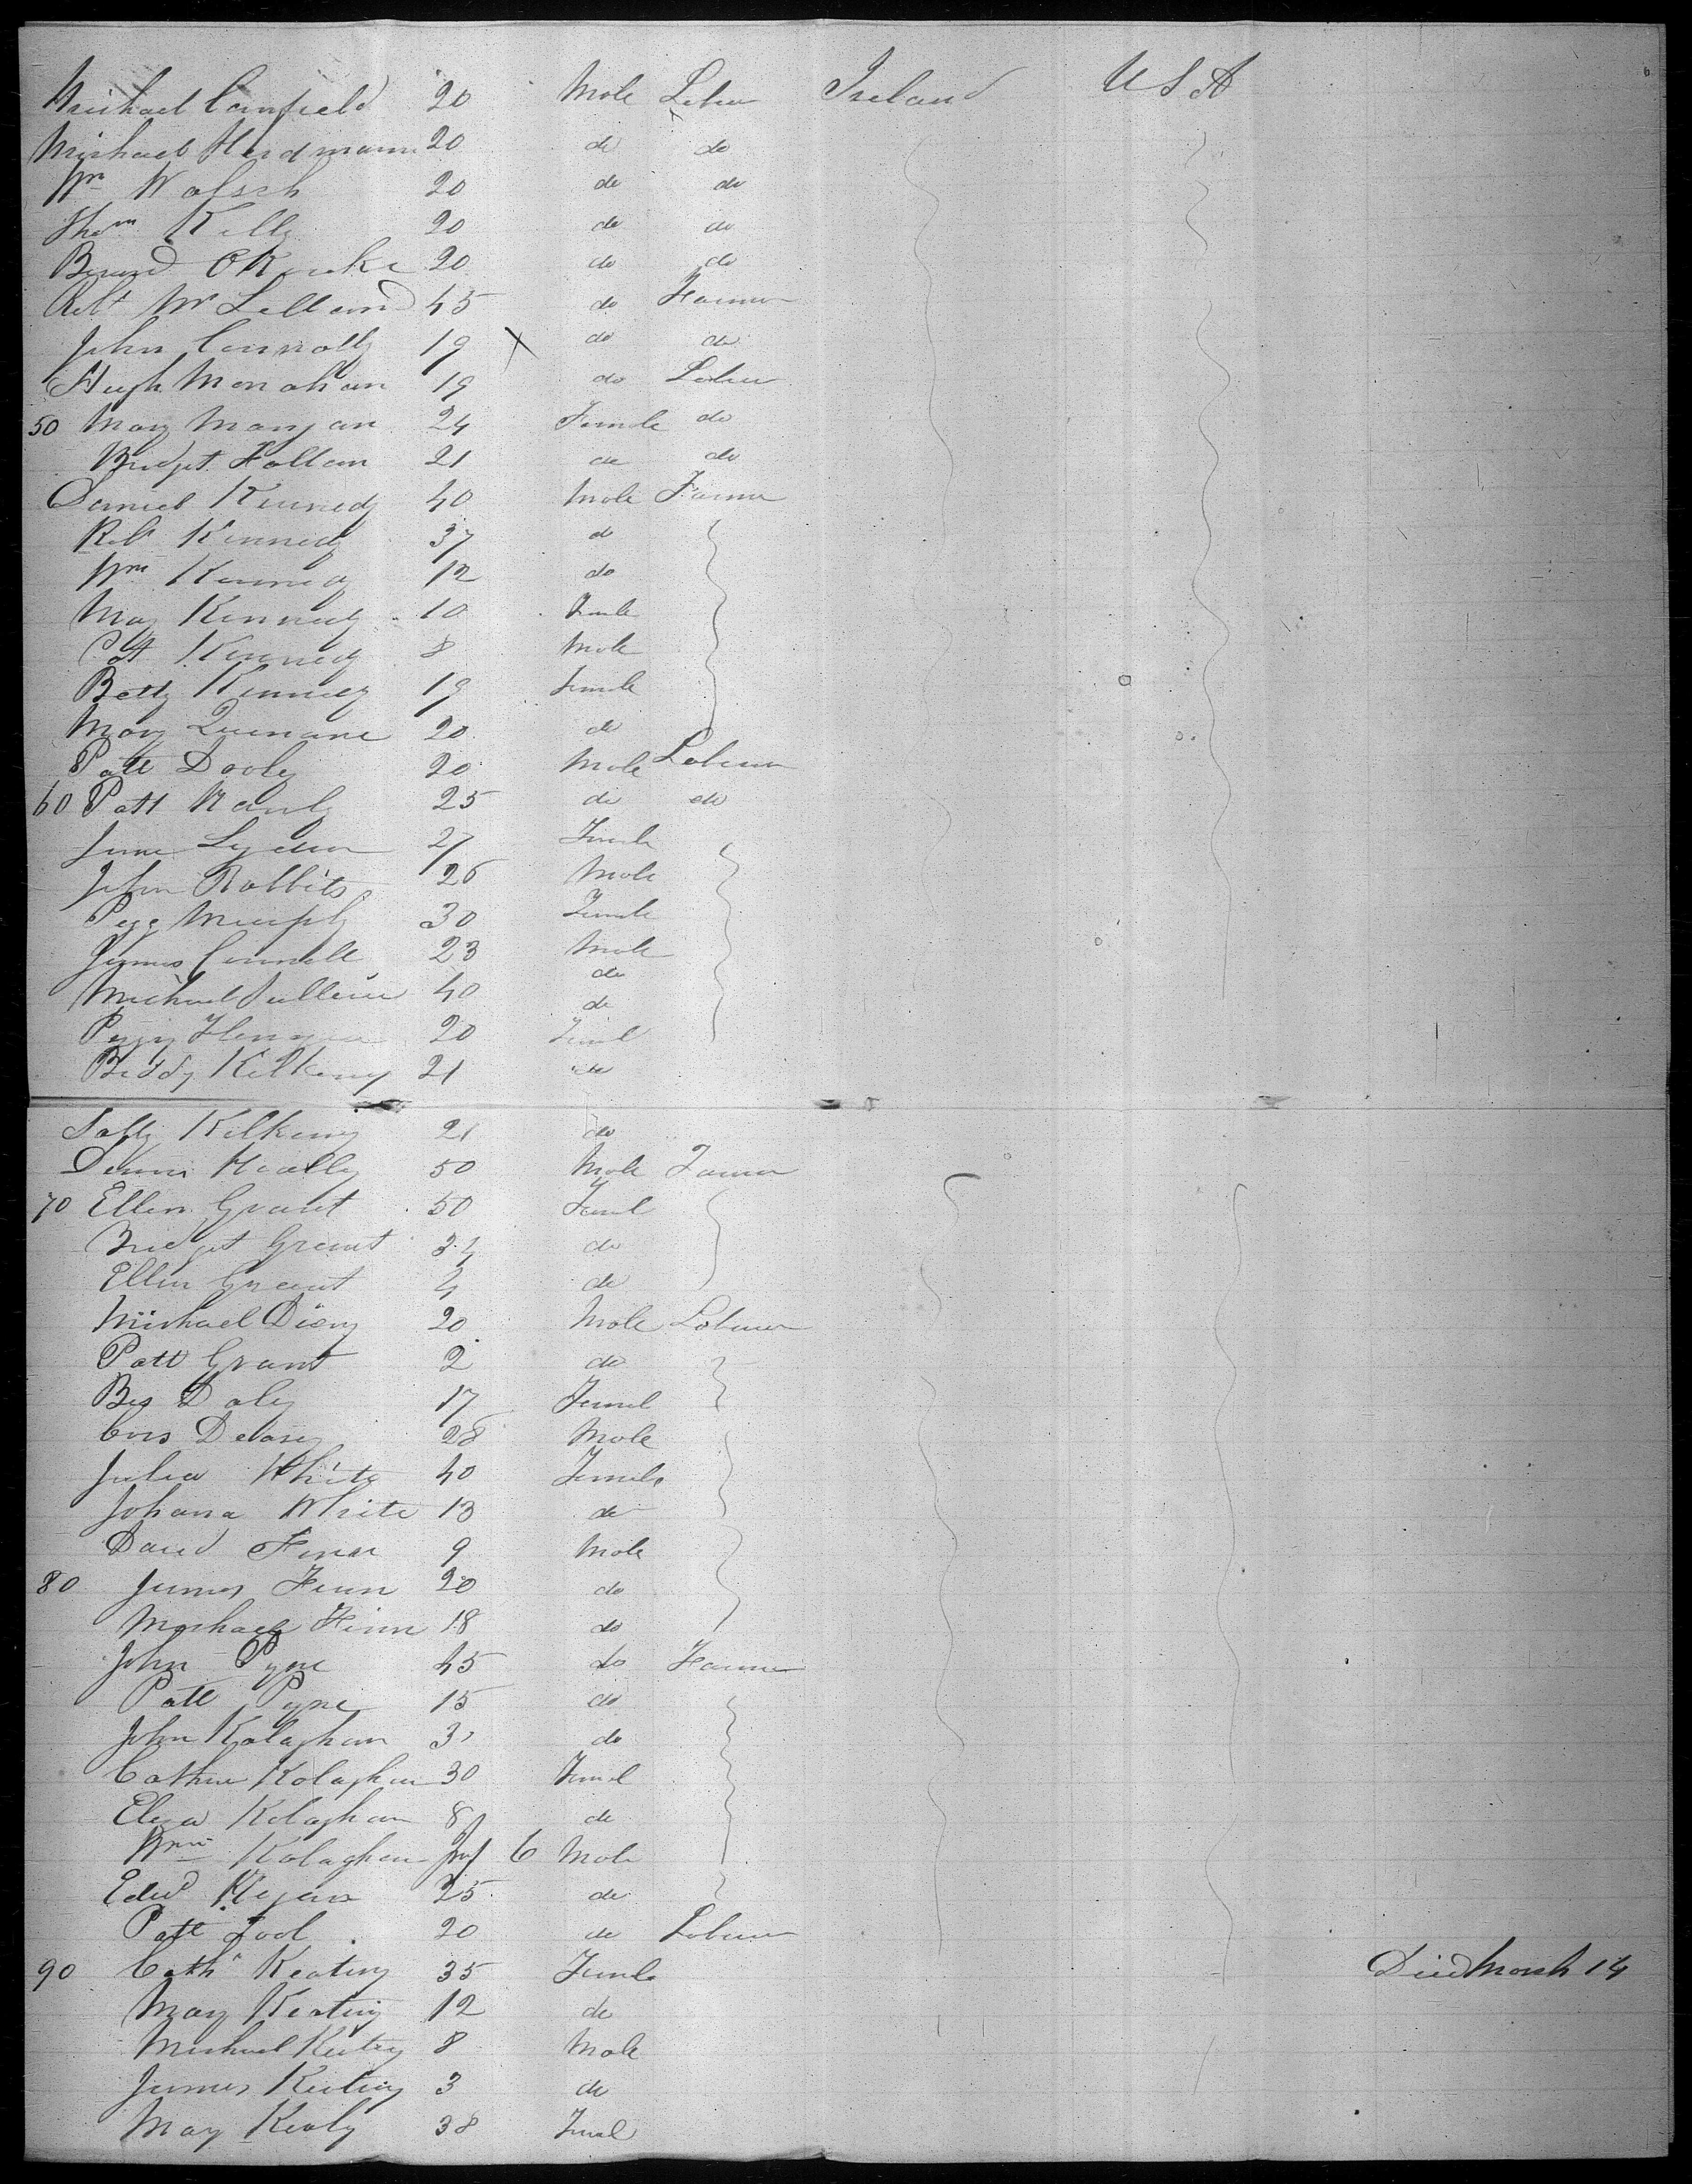 Michael Canfield 20 Male Labur Ireland USA
Michael Herdmann 20 do do
Wm Walsch 20 do do
Thom Kelly 20 do do
Bernard O Keeke 20 do do
Robt Mc Lelland 45 do Farmer
John Connolly 19 X do do
Hugh Monahan 19 do Labur
50 Mary Mangan 24 Female do
Bridget Fallan 21 do do
Daniel Kennedy 40 Male Farmer
Robt Kennedy 37 do
Wm Kennedy 12 do
May Kennedy 10 Female
Patt Kennedy 8 Male
Betty Kennedy 19 Female
Mary Quinane 20 do
Patt Dooly 20 Male Laburer
60 Patt 25 do do
Jane Lyden 27 Female
John Robbits 26 Male
Pegg Murphy 30 Female
James Connell 23 Male
Michael 40 do
do
Peggy 20 Femal
Biddy Kilkenny 21 do
Sally Kilkenny 21 do
Dennis Healley 50 Male Farmer
70 Ellen Grant 50 Femal
Bridget Grant 34 do
Ellen Grant 4 do
Michael Diery 20 Male Laburer
Patt Grant 2 do
Bes Daley 17 Femel
Cors Delasey 28 Male
Julia White 40 Female
Johana White 13 do
David Finn 9 Male
80 James Finn 20 do
Michael Finn 18 do
John Pyne 45 do Farmer
Patt Pyne 15 do
John Kalaghan do
Cathne Kolaghan 30 Femal
Eliza Kolaghan 8 do
Wm Kolaghan Inf 6 Male
Edwd Kegan 25 do
Patt Tool 20 do Laburer
90 Cathn Keating 35 Female Died March 14
May Keating 12 do
Michael Keating 8 Male
James Keating 3 do
May Kealy 38 Femal